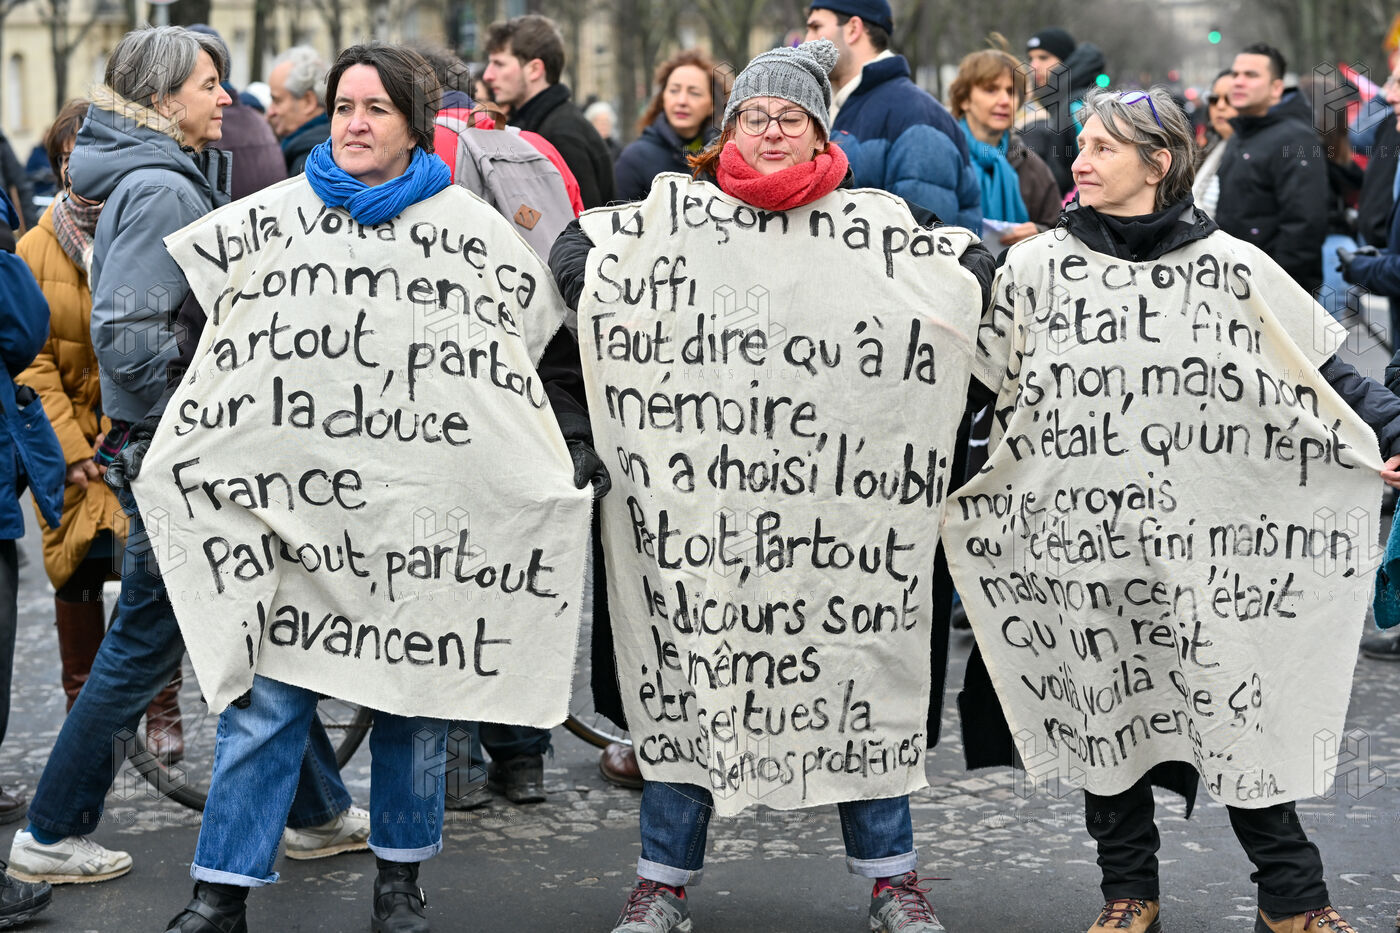 Voilà, voilà que ça
recommence
Partout, partou
sur la douce
France
Partout, partout,
ils avancent
la leçon n'a pas
suffi
Faut dire qu'à la
mémoire,
on a choisi l'oubli
Partoit, Partout,
les dicours sont
les mêmes
étr ser tues la
cause de nos problèmes
moi je croyais
qu' c'était fini
mais non, mais non
ce n'était qu'un répit
moi, je croyais
qu' c'était fini mais non,
mais non, ce n'était
qu'un répit
voilà, voilà que ça
recommence...
taha
HANS LUCAS